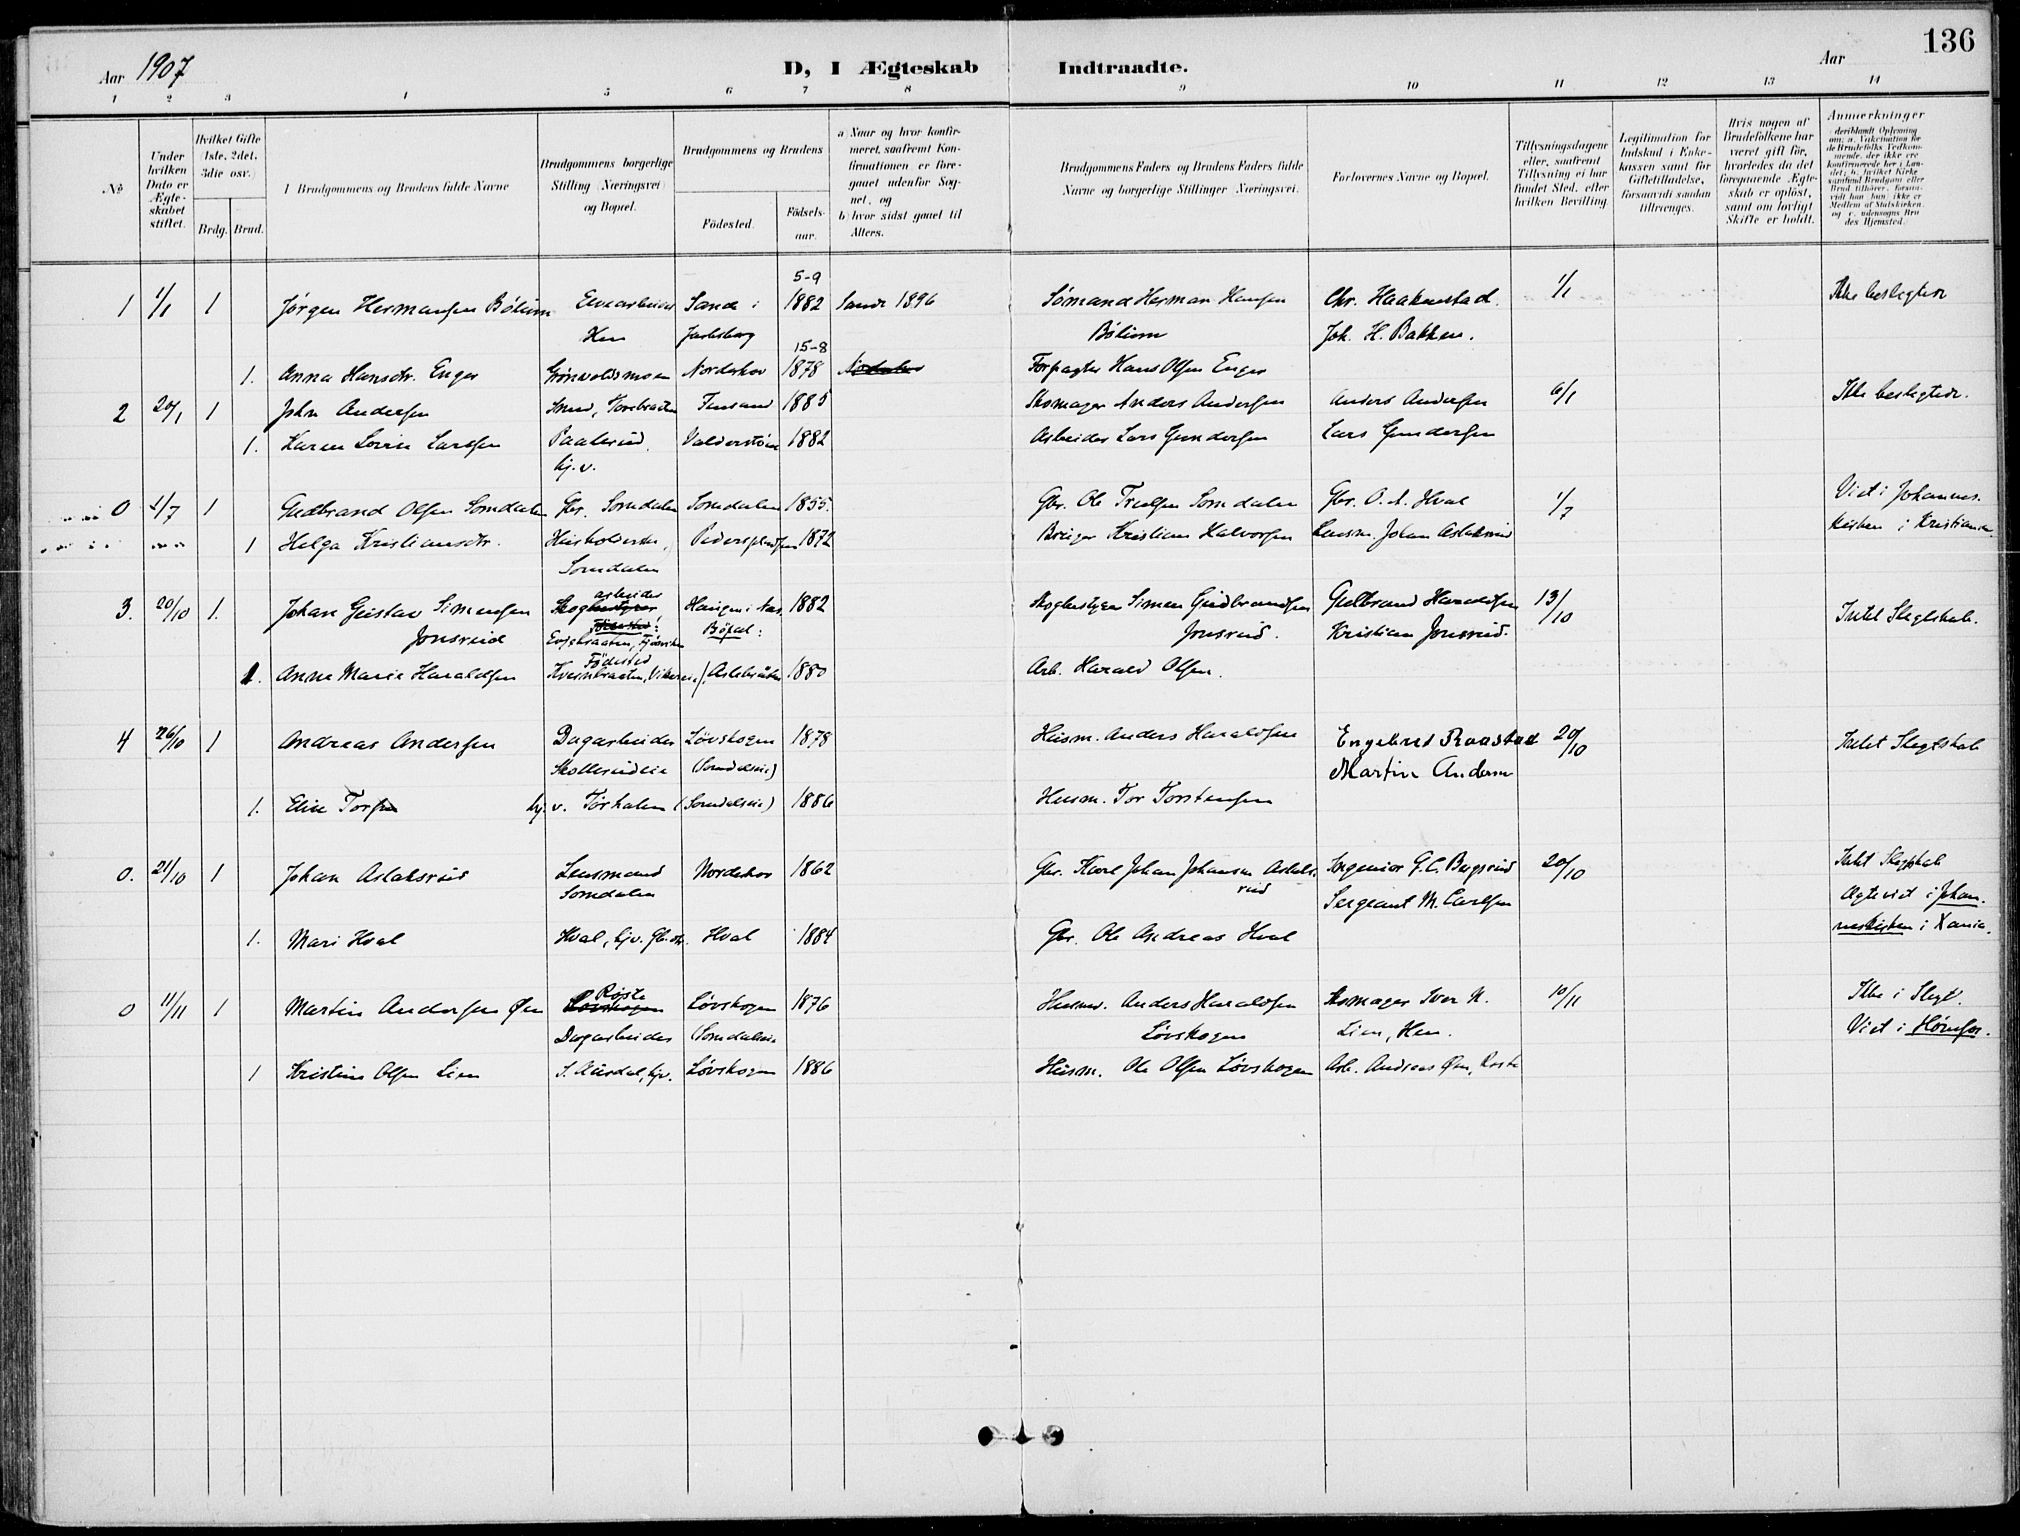 136
Aar 1907
D, I Ægteskab Indtraadte.
Aar
1 2 3 4 5 6 7 8 9 10 11 12 13 14
No
Under hvilken Dato er Ægteskabet stiftet.
Hvilket Gifte 1ste, 2det, 3die osv.)
Brdg. Brud.
Brudgommens og Brudens fulde Navne
Brudgommens borgerlige Stilling (Næringsvei) og Bopæl.
Brudgommens og Brudens
Födested.
Födselsaar.
a) Naar og hvor konfirmeret, saafremt Konfirmationen er foregaaet udenfor Sognet, og
b) hvor sidst gaaet til Alters.
Brudgommens Faders og Brudens Faders fulde Navne og borgerlige Stillinger (Næringsvei.
Forlovernes Navne og Bopæl.
Tillysningsdagene eller, saafremt Tillysning ei har fundet Sted, efter hvilken Bevilling.
Legitimation for Indskud i Enkekassen samt for Giftetilladelse, forsaavidt saadan tiltrænges.
Hvis nogen af Brudefolkene har været gift før, hvorledes da det foregaaende Ægteskab er opløst, samt om lovligt Skifte er holdt.
Anmærkninger
1 1/1 1 Jørgen Hermansen Bölum Elvearbeider Sande i 5-9 1882 Sande 1896 Sømand Herman Hansen Chr. Haakenstad. 1/1 Ikke beslegtede
Hen Jarlsberg Bölum Joh. H. Bakken.
1. Anna Hansdtr. Enger Grönvoldsmoen Norderhov 15-8 1878 Forpagter Hans Olsen Enger
2 20/1 1 John Andersen Smed, 1885 Skomager Anders Andersen Anders Andersen 6/1 Ikke beslegtede.
1. Karen Lovise Larssen Paalerud, 1882 Arbeider Lars Gundersen Lars Gundersen
hj. v.
0 1/7 1 Gudbrand Olsen Somdalen Gbr. Somdalen Somdalen 1855. Gbr. Ole Truelsen Somdalen Gbr. O. A. Hval 1/7 Viet i Johannes
1 Helga Kristiansdtr. Husholderske, 1872 Kristian Halvorsen Lensm. Johan Aslaksrud kirken i Kristiania.
Somdalen
3. 20/10 1. Johan Gustav Simensen arbeider 1882 Simen Gudbrandsen Gulbrand Haraldsen 13/10 Intet Slegtskab.
Jonsrud Bopæl: Jonsrud. Kristian Jonsrud.
Födested
1. Anne Marie Haraldsen 1880 Arb. Harald Olsen.
4 26/10 1 Andreas Andersen Dagarbeider Lövskogen 1878 Husm. Anders Haraldsen Engebret Raastad 20/10 Intet Slegtskab
(Somdalseie) Martin Andersen
1. Eline Torsen hj. v. (Somdalseie) 1886 Husm. Tor Torstensen
0. 21/10 1 Johan Aslaksrud Lensmand Norderhov 1862 Gbr. Karl Johan Johansen Aslaksrud Ingeniør G. C. Bergsrud 20/10 Intet Slegtskab
Somdalen Sergeant M. Carlsen Ægteviet i Johan-
1. Mari Hval Hval, hjv. Gb.dtr. Hval 1884 Gbr. Ole Andreas Hval neskirken i Xania.
0 11/11 1 Martin Andersen Øen Røste Lövskogen 1876 Husm. Anders Haraldsen Skomager Iver N. 10/11 Ikke i Slegt.
Dagarbeider (Somdalseie Lövskogen Lien, Hen. Viet i Hønefos.
1 Kristine Olsen Lien S. Aurdal, hjv. Lövskogen 1886 Husm. Ole Olsen Lövskogen Arb. Andreas Øen, Røste